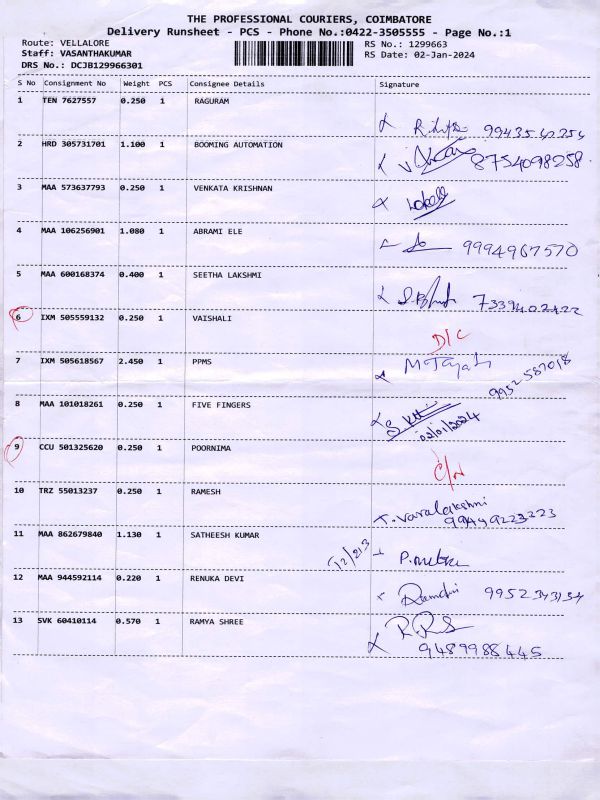 THE PROFESSIONAL COURIERS, COIMBATORE
Delivery Runsheet - PCS - Phone No.:0422-3505555 - Page No.:1
Route: VELLALORE RS No.: 1299663
Staff: VASANTHAKUMAR RS Date: 02-Jan-2024
DRS No.: DCJB129966301
S No Consignment No Weight PCS Consignee Details Signature
1 TEN 7627557 0.250 1 RAGURAM
2 HRD 305731701 1.100 1 BOOMING AUTOMATION 8754098258
3 MAA 573637793 0.250 1 VENKATA KRISHNAN
4 MAA 106256901 1.080 1 ABRAMI ELE 9994967570
5 MAA 600168374 0.400 1 SEETHA LAKSHMI 7339402422
6 IXM 505559132 0.250 1 VAISHALI D/C
7 IXM 505618567 2.450 1 PPMS 9952 587018
8 MAA 101018261 0.250 1 FIVE FINGERS 02/01/2024
9 CCU 501325620 0.250 1 POORNIMA
10 TRZ 55013237 0.250 1 RAMESH T. Varalakshmi
99449223223
11 MAA 862679840 1.130 1 SATHEESH KUMAR
12 MAA 944592114 0.220 1 RENUKA DEVI
13 SVK 60410114 0.570 1 RAMYA SHREE
9489988445